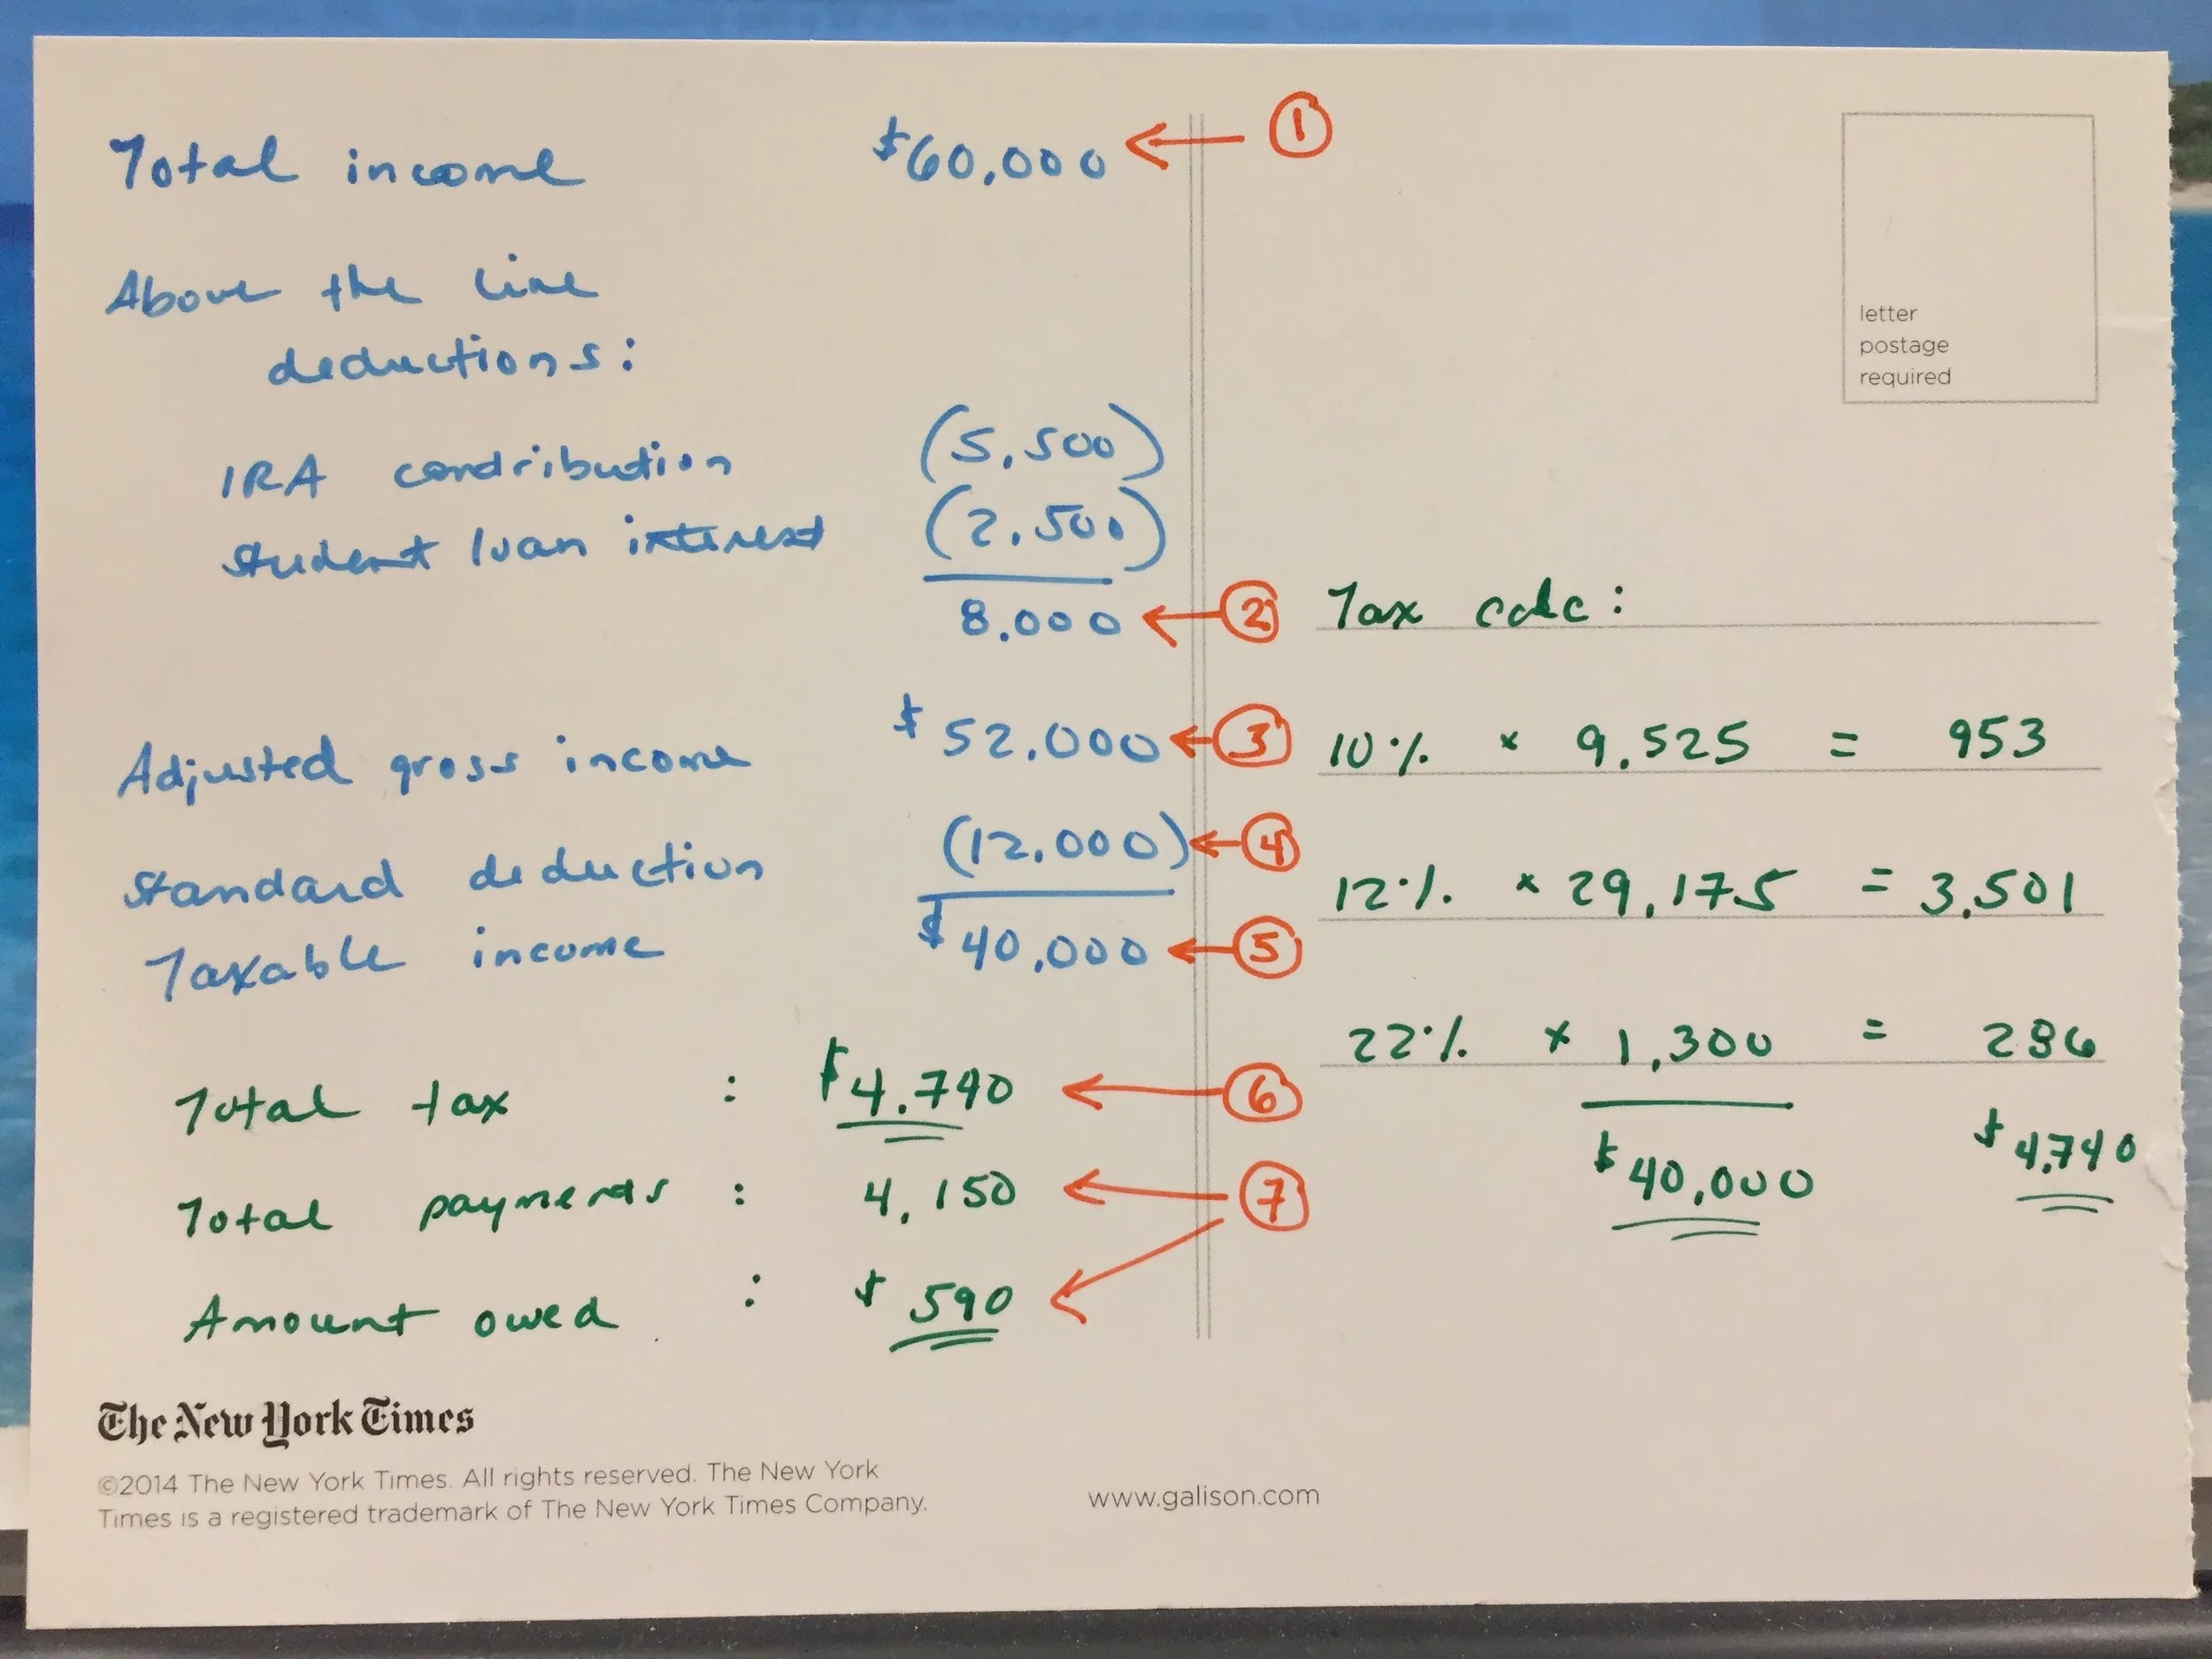 Total income $60,000 ①
Above the line
deductions:
IRA contribution (5,500)
Student loan interest (2,500)
8,000 ②
Adjusted gross income $52,000 ③
Standard deduction (12,000) ④
Taxable income $40,000 ⑤
Total tax : $4,740 ⑥
Total payments : 4,150 ⑦
Amount owed : $590
letter
postage
required
Tax calc:
10% × 9,525 = 953
12% × 29,175 = 3,501
22% × 1,300 = 286
$40,000 $4,740
The New York Times
©2014 The New York Times. All rights reserved. The New York
Times is a registered trademark of The New York Times Company.
www.galison.com